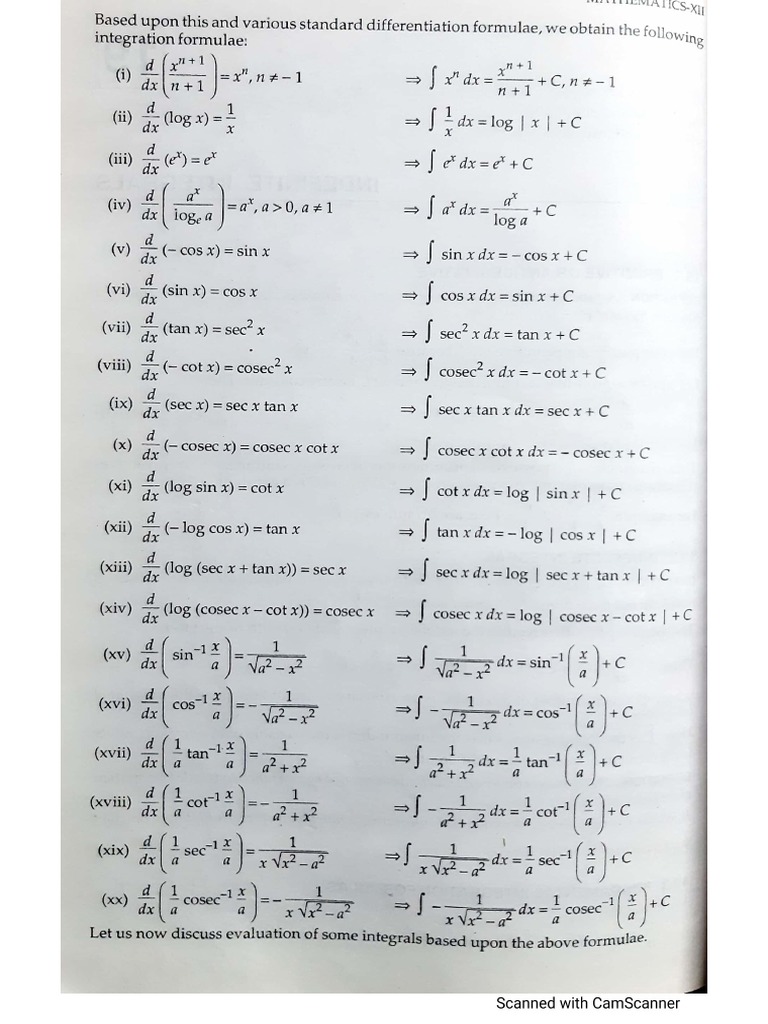 MATHEMATICS-XII
Based upon this and various standard differentiation formulae, we obtain the following
integration formulae:
(i) d/dx (xⁿ⁺¹/(n + 1)) = xⁿ, n ≠ – 1 ⇒ ∫ xⁿ dx = xⁿ⁺¹/(n + 1) + C, n ≠ – 1
(ii) d/dx (log x) = 1/x ⇒ ∫ 1/x dx = log | x | + C
(iii) d/dx (eˣ) = eˣ ⇒ ∫ eˣ dx = eˣ + C
(iv) d/dx (aˣ/logₑ a) = aˣ, a > 0, a ≠ 1 ⇒ ∫ aˣ dx = aˣ/log a + C
(v) d/dx (– cos x) = sin x ⇒ ∫ sin x dx = – cos x + C
(vi) d/dx (sin x) = cos x ⇒ ∫ cos x dx = sin x + C
(vii) d/dx (tan x) = sec² x ⇒ ∫ sec² x dx = tan x + C
(viii) d/dx (– cot x) = cosec² x ⇒ ∫ cosec² x dx = – cot x + C
(ix) d/dx (sec x) = sec x tan x ⇒ ∫ sec x tan x dx = sec x + C
(x) d/dx (– cosec x) = cosec x cot x ⇒ ∫ cosec x cot x dx = – cosec x + C
(xi) d/dx (log sin x) = cot x ⇒ ∫ cot x dx = log | sin x | + C
(xii) d/dx (– log cos x) = tan x ⇒ ∫ tan x dx = – log | cos x | + C
(xiii) d/dx (log (sec x + tan x)) = sec x ⇒ ∫ sec x dx = log | sec x + tan x | + C
(xiv) d/dx (log (cosec x – cot x)) = cosec x ⇒ ∫ cosec x dx = log | cosec x – cot x | + C
(xv) d/dx (sin⁻¹ x/a) = 1/√(a² – x²) ⇒ ∫ 1/√(a² – x²) dx = sin⁻¹ (x/a) + C
(xvi) d/dx (cos⁻¹ x/a) = – 1/√(a² – x²) ⇒ ∫ – 1/√(a² – x²) dx = cos⁻¹ (x/a) + C
(xvii) d/dx (1/a tan⁻¹ x/a) = 1/(a² + x²) ⇒ ∫ 1/(a² + x²) dx = 1/a tan⁻¹ (x/a) + C
(xviii) d/dx (1/a cot⁻¹ x/a) = – 1/(a² + x²) ⇒ ∫ – 1/(a² + x²) dx = 1/a cot⁻¹ (x/a) + C
(xix) d/dx (1/a sec⁻¹ x/a) = 1/(x √(x² – a²)) ⇒ ∫ 1/(x √(x² – a²)) dx = 1/a sec⁻¹ (x/a) + C
(xx) d/dx (1/a cosec⁻¹ x/a) = – 1/(x √(x² – a²)) ⇒ ∫ – 1/(x √(x² – a²)) dx = 1/a cosec⁻¹ (x/a) + C
Let us now discuss evaluation of some integrals based upon the above formulae.
Scanned with CamScanner